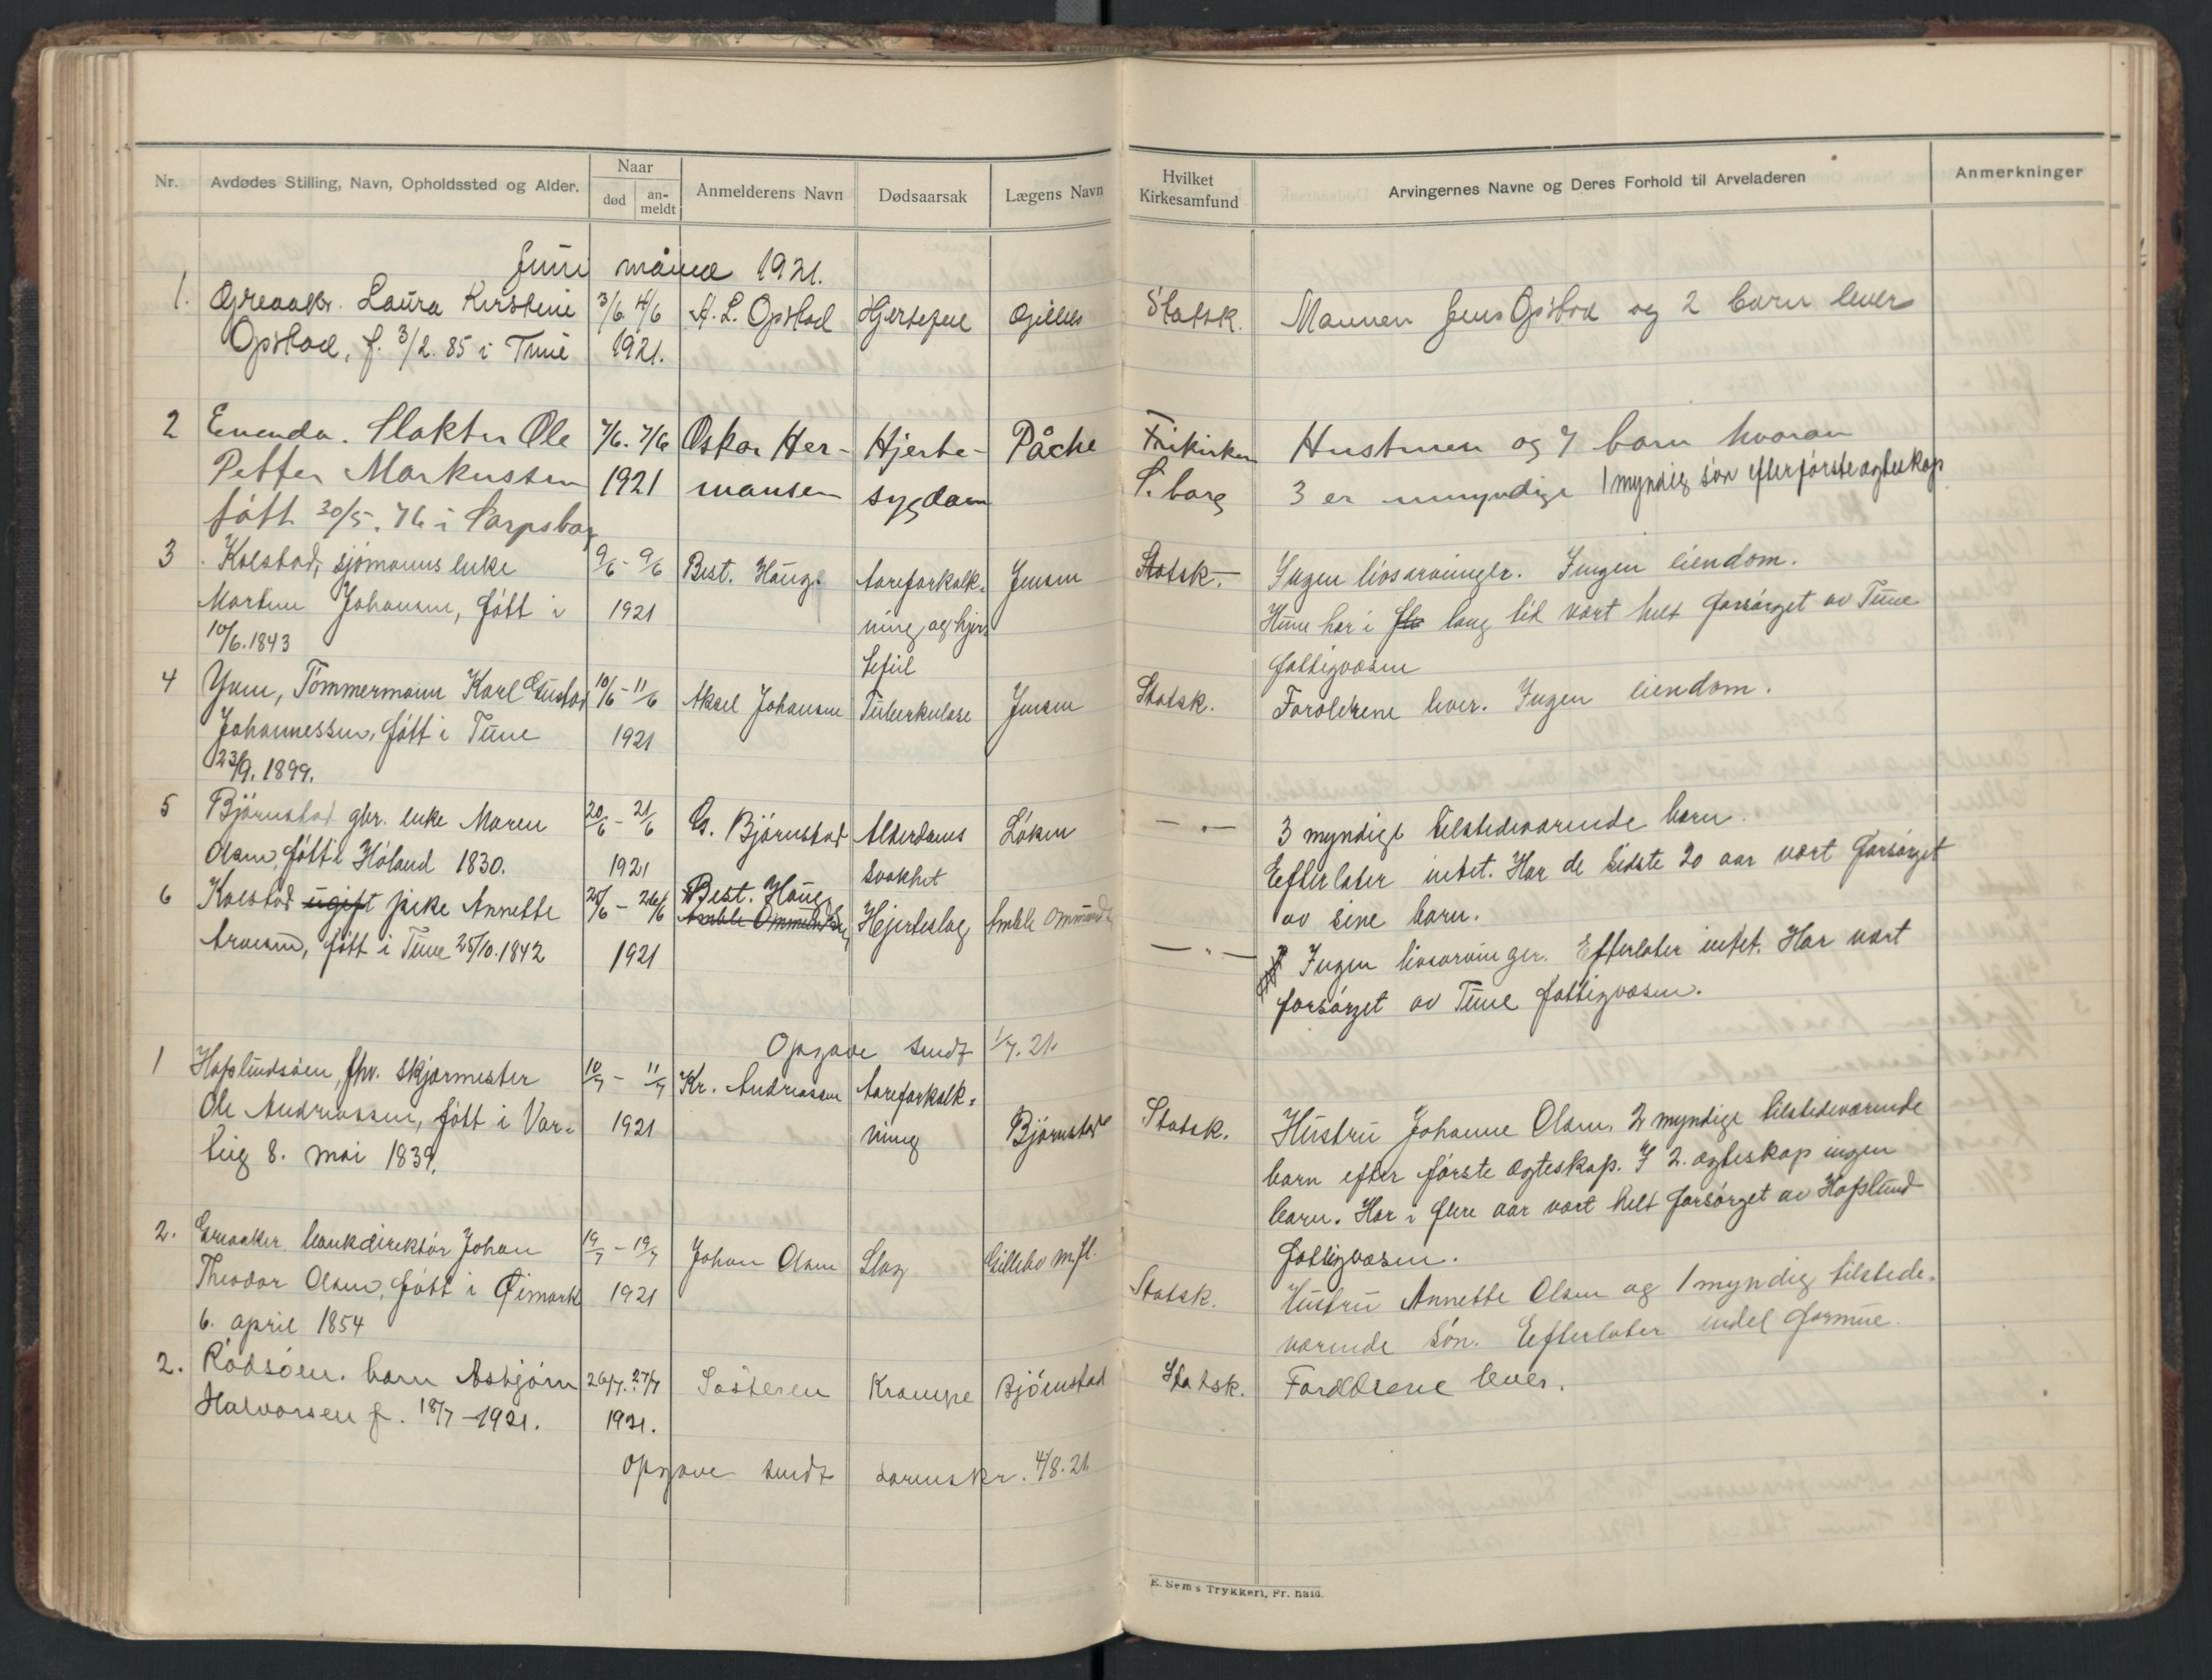 Nr.
Avdødes Stilling, Navn, Opholdssted og Alder.
Naar
død
an-
meldt
Anmelderens Navn
Dødsaarsak
Lægens Navn
Hvilket
Kirkesamfund
Arvingernes Navne og Deres Forhold til Arveladeren
Anmerkninger
Juni måned 1921.
1. Greaaker. Laura Kirstine 3/6 4/6 A. L. Opstad Hjertefeil Statsk. Mannen Jens Opstad og 2 barn lever
Opstad, f. 3/2 85 i Tune 1921.
2 Enenda. Slakter Ole 7/6. 7/6 Oskar Her- Hjerte- Påche Frikirken Hustruen og 7 barn hvorav
Petter Markussen 1921 mansen sygdom S.borg 3 er umyndige 1 myndig søn efter første ægteskap
født 30/5. 76 i Sarpsborg
3 Kolstad, sjømanns enke 9/6 - 9/6 Best. Haug. Aareforkalk- Jensen Statsk. Ingen livsarvinger. Ingen eiendom.
Martine Johansen, født i 1921 ning og hjer- Hun har i lang tid vært helt forsørget av Tune
10/6. 1843 tefeil fattigvæsen
4 Yven, Tømmermann Karl Gustav 10/6 - 11/6 Aksel Johansen Tuberkulose Jensen Statsk. Forældrene lever. Ingen eiendom.
Johannessen, født i Tune 1921
23/9. 1899.
5 Bjørnstad gbr. enke Maren 20/6 - 21/6 G. Bjørnstad Alderdoms Løken — „ — 3 myndige tilstedeværende barn.
Olsen, født i Høland 1830. 1921 svakhet Efterlater intet. Har de sidste 20 aar vært forsørget
av sine barn.
6 Kolstad ugift pike Annette 25/6 - 26/6 Best. Haug Hjerteslag — „ — Ingen livsarvinger. Efterlater intet. Har vært
født i Tune 25/10. 1842 1921 forsørget av Tune fattigvæsen.
Opgave sendt 1/7. 21.
1 Hafslundsøen, fhv. skjærmester 10/7 - 11/7 Kr. Andreassen Aareforkalk-
Ole Andreassen, født i Var- 1921 ning Bjørnstad Statsk. Hustru Johanne Olsen, 2 myndige tilstedeværende
teig 8. mai 1839. barn efter første ægteskap. I 2. ægteskap ingen
barn. Har i flere aar vært helt forsørget av Hafslund
fattigvæsen.
2. Greaaker bankdirektør Johan 19/7 - 19/7 Johan Olsen Slag Gillebo m.fl.
Theodor Olsen, født i Øimark 1921 Statsk. Hustru Annette Olsen og 1 myndig tilstede-
6. april 1854 værende søn. Efterlater endel formue.
2. Rødsøen. barn Asbjørn 26/7. 27/7 Søsteren Krampe Bjørnstad Statsk. Forældrene lever.
Halvorsen f. 18/7 - 1921. 1921.
Opgave sendt sorenskr. 4/8. 21
E. Sem's Trykkeri, Fr. hald.